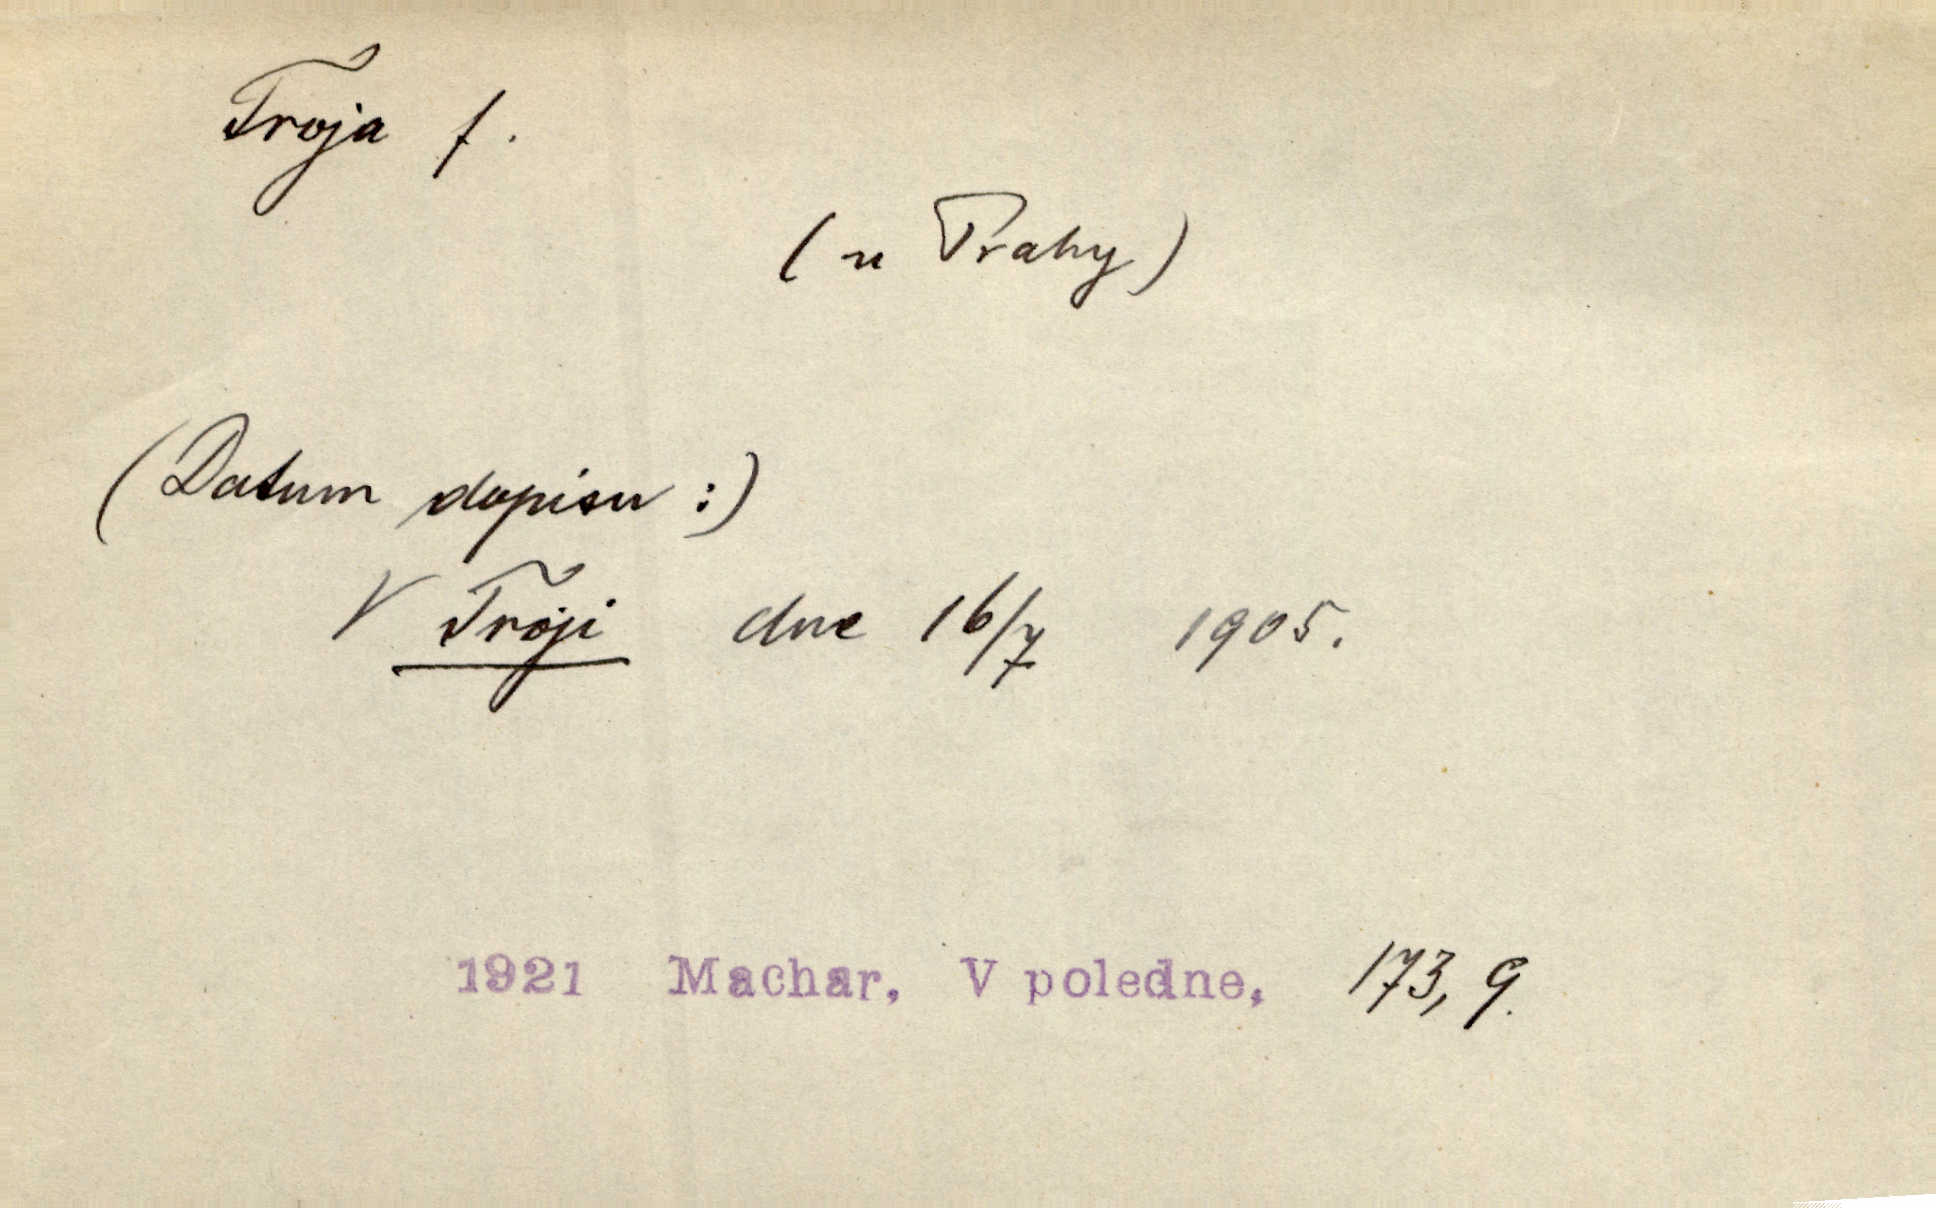 Troja f.
(u Prahy)
(Datum dopisu :)
V Troji dne 16/7 1905.
1921 Machar, V poledne, 173, 9.